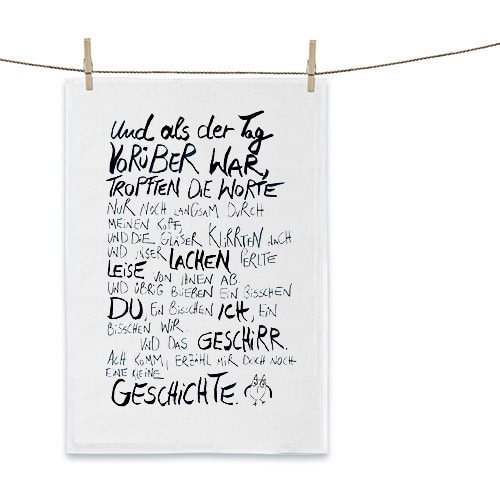 Und als der Tag
VORÜBER WAR,
TROPFTEN DIE WORTE
NUR NOCH LANGSAM DURCH
MEINEN KOPF,
UND DIE GLÄSER KLIRRTEN NACH
UND UNSER LACHEN PERLTE
LEISE VON IHNEN AB
UND ÜBRIG BLIEBEN EIN BISSCHEN
DU, EIN BISSCHEN ICH, EIN
BISSCHEN WIR
UND DAS GESCHIRR.
ACH KOMM, ERZÄHL MIR DOCH NOCH
EINE KLEINE
GESCHICHTE.